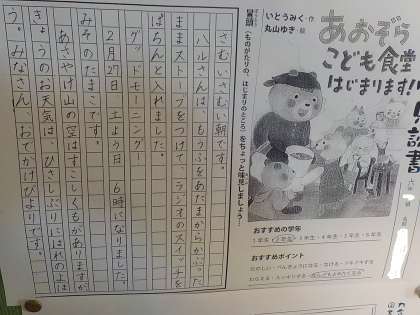 あおぞら
こども食堂
はじまります!!
いとうみく・作
丸山ゆき・絵
冒頭(ものがたりの、はじまりのところ)をちょっと味見しましょう…
さむいさむい朝です。
ハルさんは、もうふをあたまからかぶった
ままストーブをつけて、ラジオのスイッチを
ぱちんと入れました。
グッモーニング。
2月27日 土よう日 6時になりました。
みそのたまこです。
あさやけ山の空はすこしくもがありますが
きょうのお天気は、ひさしぶりにはれのよ
う。みなさん、おでかけびよりです。
おすすめの学年
1年生・2年生・3年生・4年生・5年生・6年生
おすすめポイント
たのしい・べんきょうになる・なける・ドキドキする